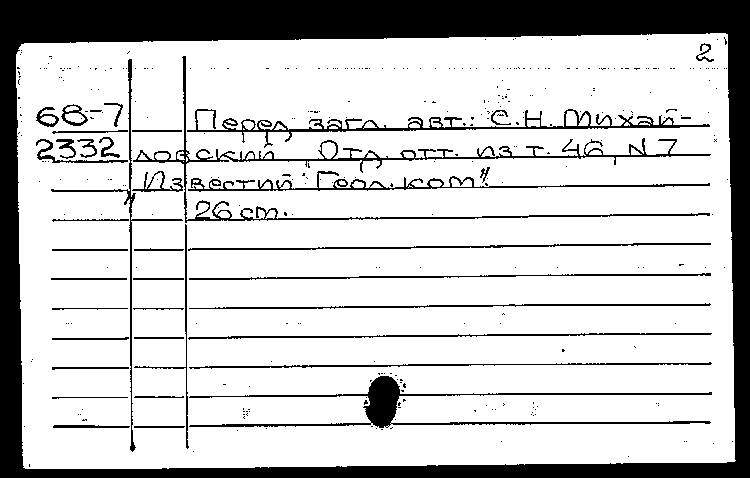 2
68-7 Перед загл. авт.: С.Н. Михай-
2332 ловский. Отд. отт. из т. 46, N 7
„Известий Геол. ком".
26 cm.